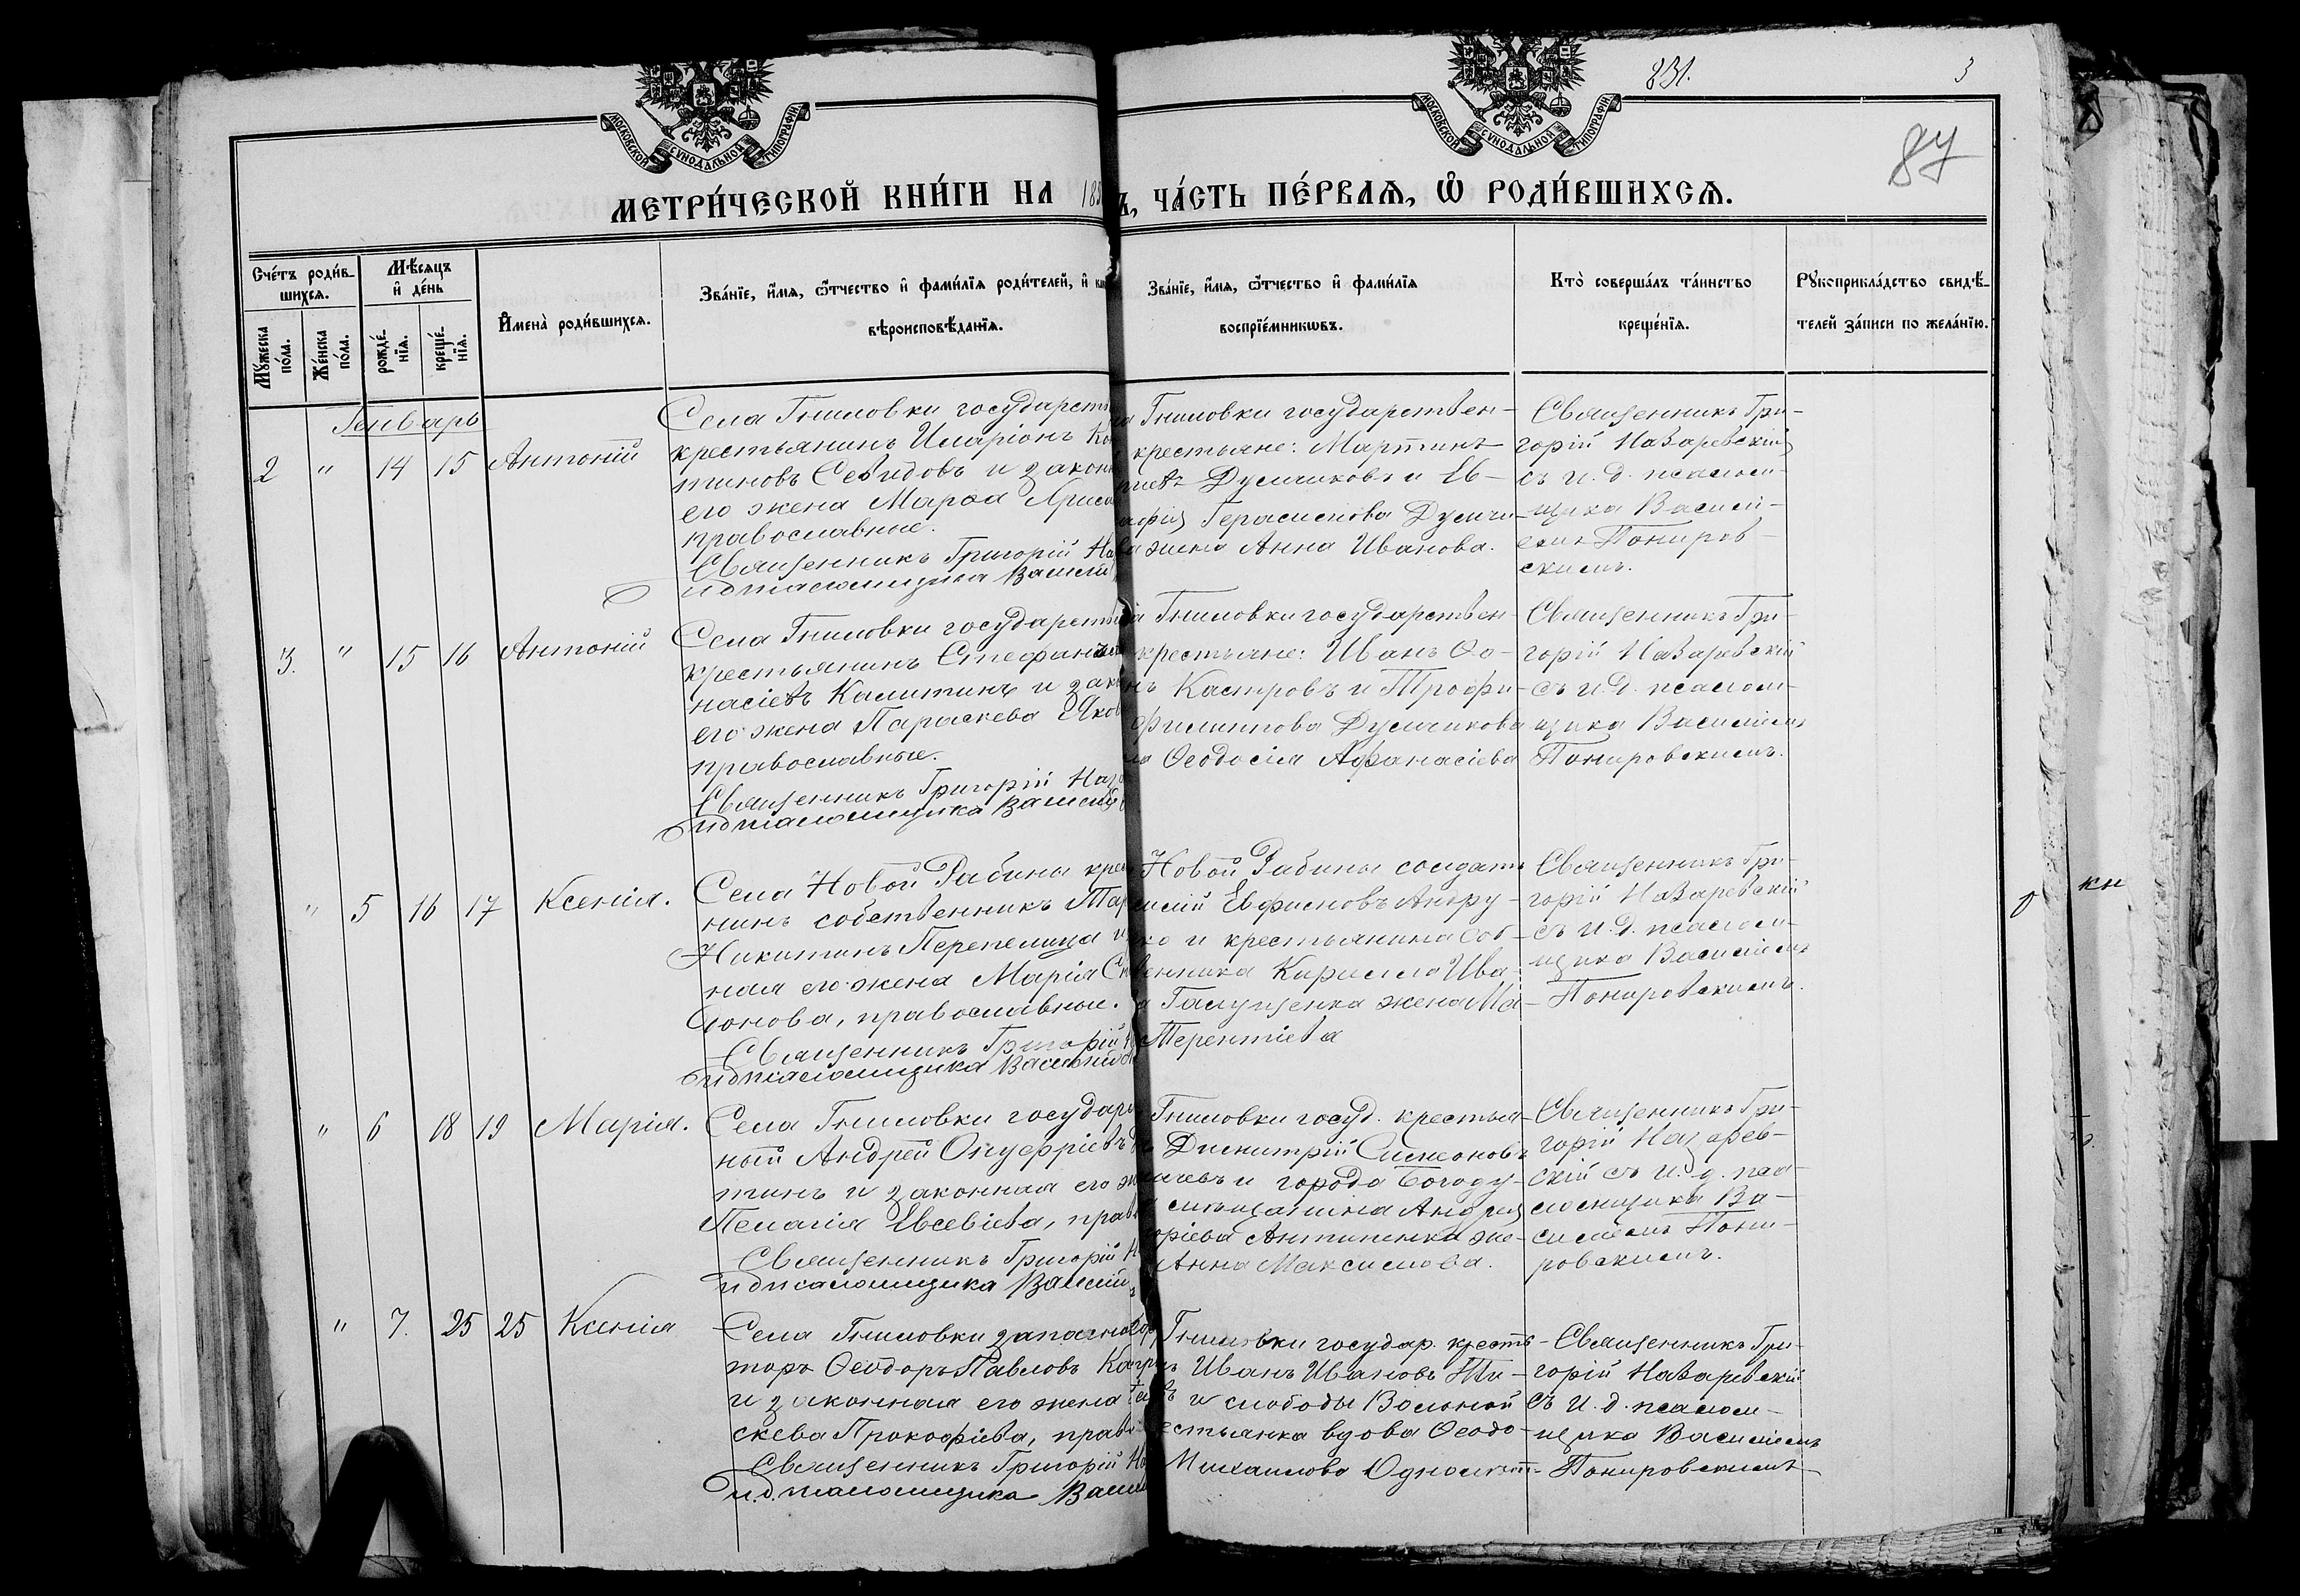 831.
3
87
МОСКОВСКОЙ СУНОДАЛЬНОЙ ТИПОГРАФІИ
МОСКОВСКОЙ СУНОДАЛЬНОЙ ТИПОГРАФІИ
МЕТРИ́ЧЕСКОЙ КНИ́ГИ НА 188
Ъ, ЧА́СТЬ ПЕ́РВАѦ, Ѡ҆ РОДИ́ВШИХСѦ.
Сче́тъ роди́в-
шихсѧ.
Мѣ́сѧцъ
и҆ де́нь
Мꙋ́жеска
по́ла.
Же́нска
по́ла.
рожде́-
нїѧ.
креще́-
нїѧ.
И҆мена̀ роди́вшихсѧ.
Зва́нїе, и҆́мѧ, ѻ҆́тчество и҆ фами́лїѧ роди́телей, и҆
вѣроисповѣ́данїѧ.
Зва́нїе, и҆́мѧ, ѻ҆́тчество и҆ фами́лїѧ
воспрїе́мникѡвъ.
Кто̀ соверша́лъ та́инство
креще́нїѧ.
Рꙋкоприкла́дство свидѣ́-
телей за́писи по жела́нїю.
Генварь
2 " 14 15 Антоній
Села Гниловки государств
крестьянинъ Иларіонъ Кон
тиновъ Севидовъ и закон
его жена Марѳа
православные.
Священникъ Григорій На
и д псаломщика Василій
Гниловки государствен-
крестьяне: Мартинъ
Думчиковъ и Ев-
Герасимова Думчи-
жена Анна Иванова.
Священникъ Гри-
горій Назаревскій
съ и. д. псалом-
щика Васили-
емъ Поныров-
скимъ.
3. " 15 16 Антоній
Села Гниловки государств
крестьянинъ Стефанъ
насіевъ Калитинъ и зак
его жена Параскева Яков
православные.
Священникъ Григорій Наз
и д псаломщика Василій
Гниловки государствен-
крестьяне: Иванъ Ѳо-
Кастровъ и Трофи-
Филиппова Думчикова
Ѳеодосія Афанасіева
Священникъ Гри-
горій Назаревскій
съ и. д. псалом-
щика Василіемъ
Поныровскимъ.
" 5 16 17 Ксенія.
Села Новой Рябины кре
нинъ собственникъ Тар
Никитинъ Перепелица и
ная его жена Марія
онова, православные.
Священникъ Григорій
и д псаломщика Василій
Новой Рябины солдатъ
Евфимовъ Андру-
ко и крестьянина соб-
венника Кирилла Ива-
Галущенка жена Ма-
Терентіева
Священникъ Гри-
горій Назаревскій
съ и. д. псалом-
щика Василіемъ
Поныровскимъ.
кн
" 6 18 19 Марія.
Села Гниловки государ
ный Андрей Онуфріевъ
тинъ и законная его ж
Пелагія Евсевіева, прав
Священникъ Григорій Н
и д псаломщика Василій
Гниловки госуд. крестья-
Димитрій Симеоновъ
и города Богоду-
мѣщанина Андрея
Антипенка же-
Анна Максимова.
Священникъ Гри-
горій Назарев-
скій съ и. д. пса-
ломщика Ва-
силіемъ Поны-
ровскимъ.
" 7. 25 25 Ксенія
Села Гниловки запасной
торъ Ѳеодоръ Павловъ Ка
и законная его жена
скева Прокофіева, прав
Священникъ Григорій На
и. д. псаломщика Васил
Гниловки государ. кресть-
Иванъ Ивановъ
и слободы Вольной
естьянка вдова Ѳеодо-
Михаилова
Священникъ Гри-
горій Назаревскій
съ и. д. псалом-
щика Василіемъ
Поныровскимъ